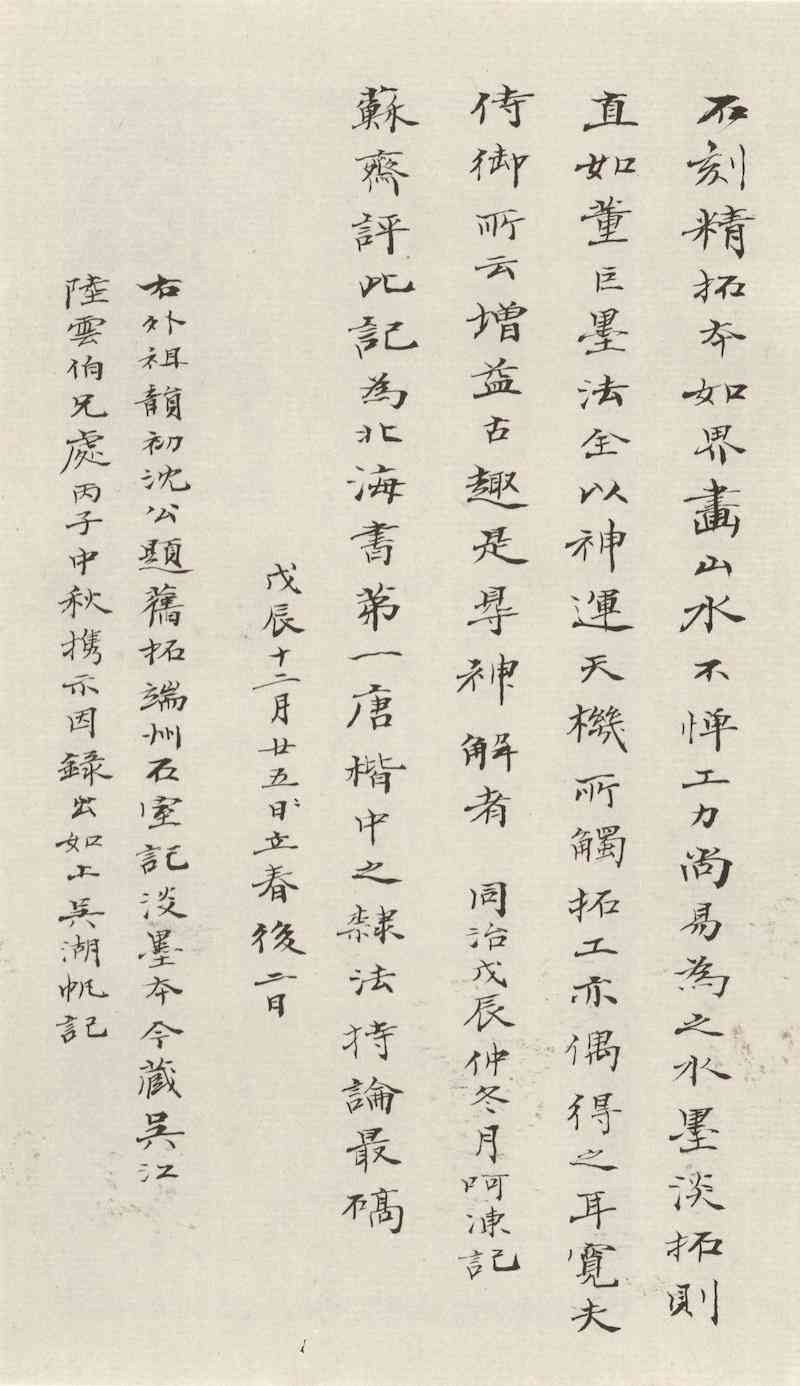 石刻精拓本如界畫山水不憚工力尚易為之水墨淡拓則
直如董巨墨法全以神運天機所觸拓工亦偶得之耳寬夫
侍御所云增益古趣是㝵神解者 同治戊辰仲冬月呵凍記
蘇齋評此記為北海書第一唐楷中之隸法持論最碻
戊辰十二月廿五日立春後二日
右外祖韻初沈公題舊拓端州石室記淡墨本今藏吳江
陸雲伯兄處丙子中秋攜示因錄出如上吳湖帆記